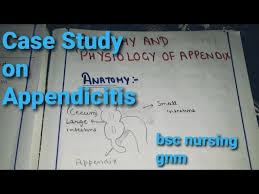 Case Study
on
Appendicitis
MY AND
PHYSIOLOGY OF APPENDIX
ANATOMY:-
(Cecum)
Large
intestine
Small
intestine
Appendix
bsc nursing
gnm